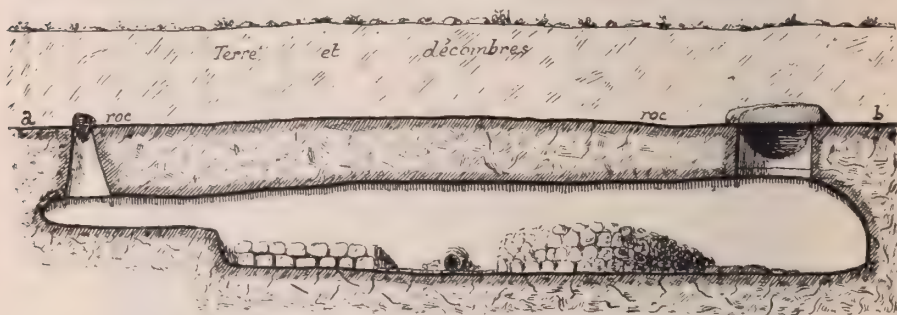 Terre et décombres
a roc roc b